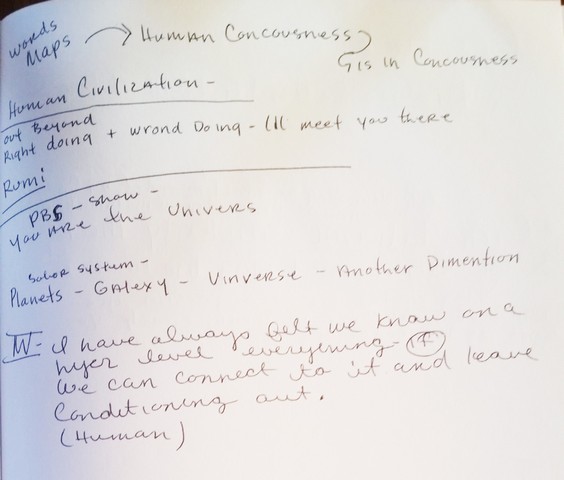 words
Maps → Human Concousness
Gis in Concousness
Human Civilization -
out Beyond
Right doing + wrong Doing - I'll meet you there
Rumi
PBS - show -
you are the Univers
Solor System -
Planets - Galexy - Vinverse - Another Dimention
IV - I have always felt we know on a
hyer level everything - +
We can connect to it and leave
Conditioning out.
(Human)